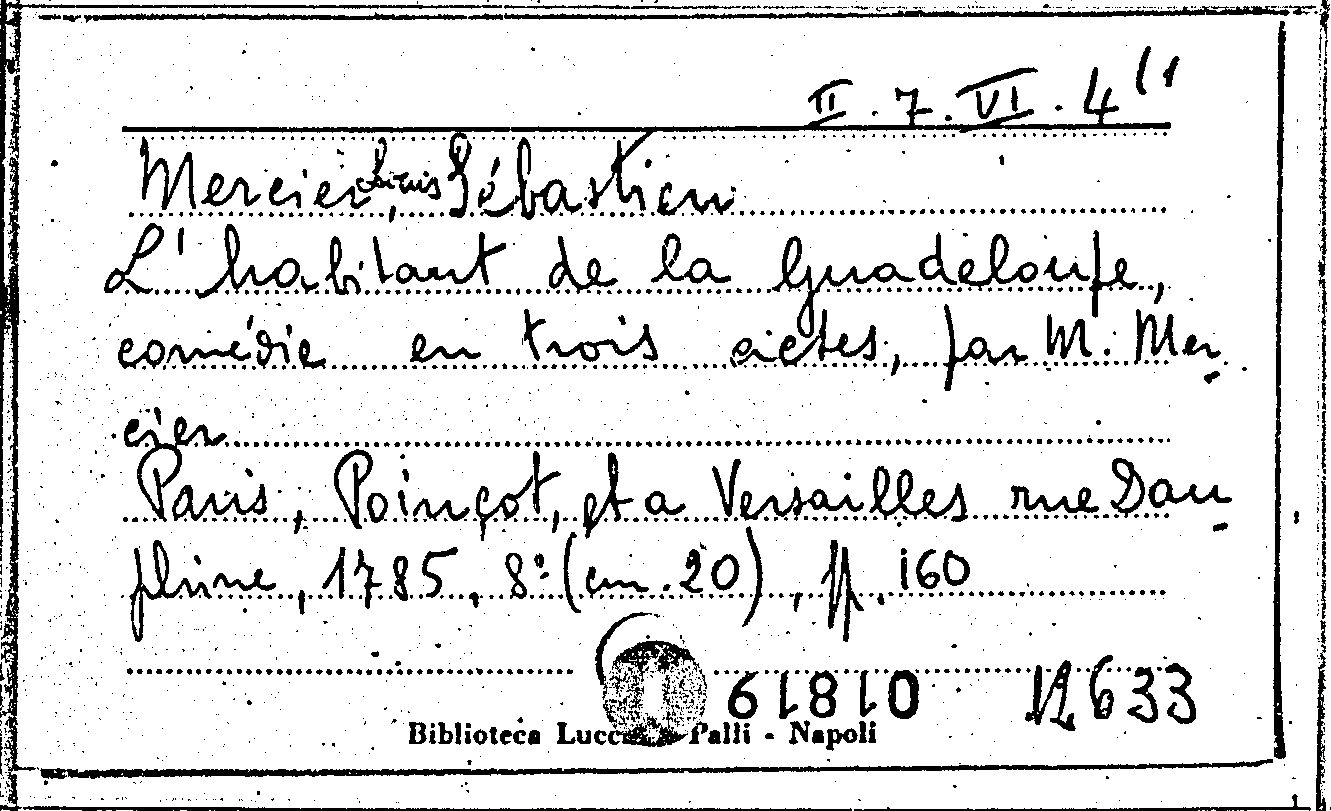 II.7.VI.4(1
Mercier, Louis Sébastien
L'habitant de la Guadeloupe,
comédie en trois actes, par M. Mer-
cier
Paris, Poinçot, et a Versailles rue Dau-
phine, 1785, 8º (cm. 20), pp. 160
61810 12633
Biblioteca Palli - Napoli